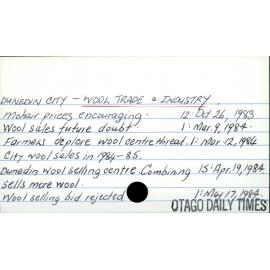 DUNEDIN CITY – WOOL TRADE & INDUSTRY.
Mohair prices encouraging. 12: Oct 26, 1983.
Wool sales future doubt. 1: Mar. 9, 1984.
Farmers deplore wool centre threat. 1: Mar. 12, 1984
City wool sales in 1984-85.
Dunedin wool selling centre. Combining 15: Apr. 19, 1984
sells more wool.
Wool selling bid rejected 1: May 17, 1984.
OTAGO DAILY TIMES